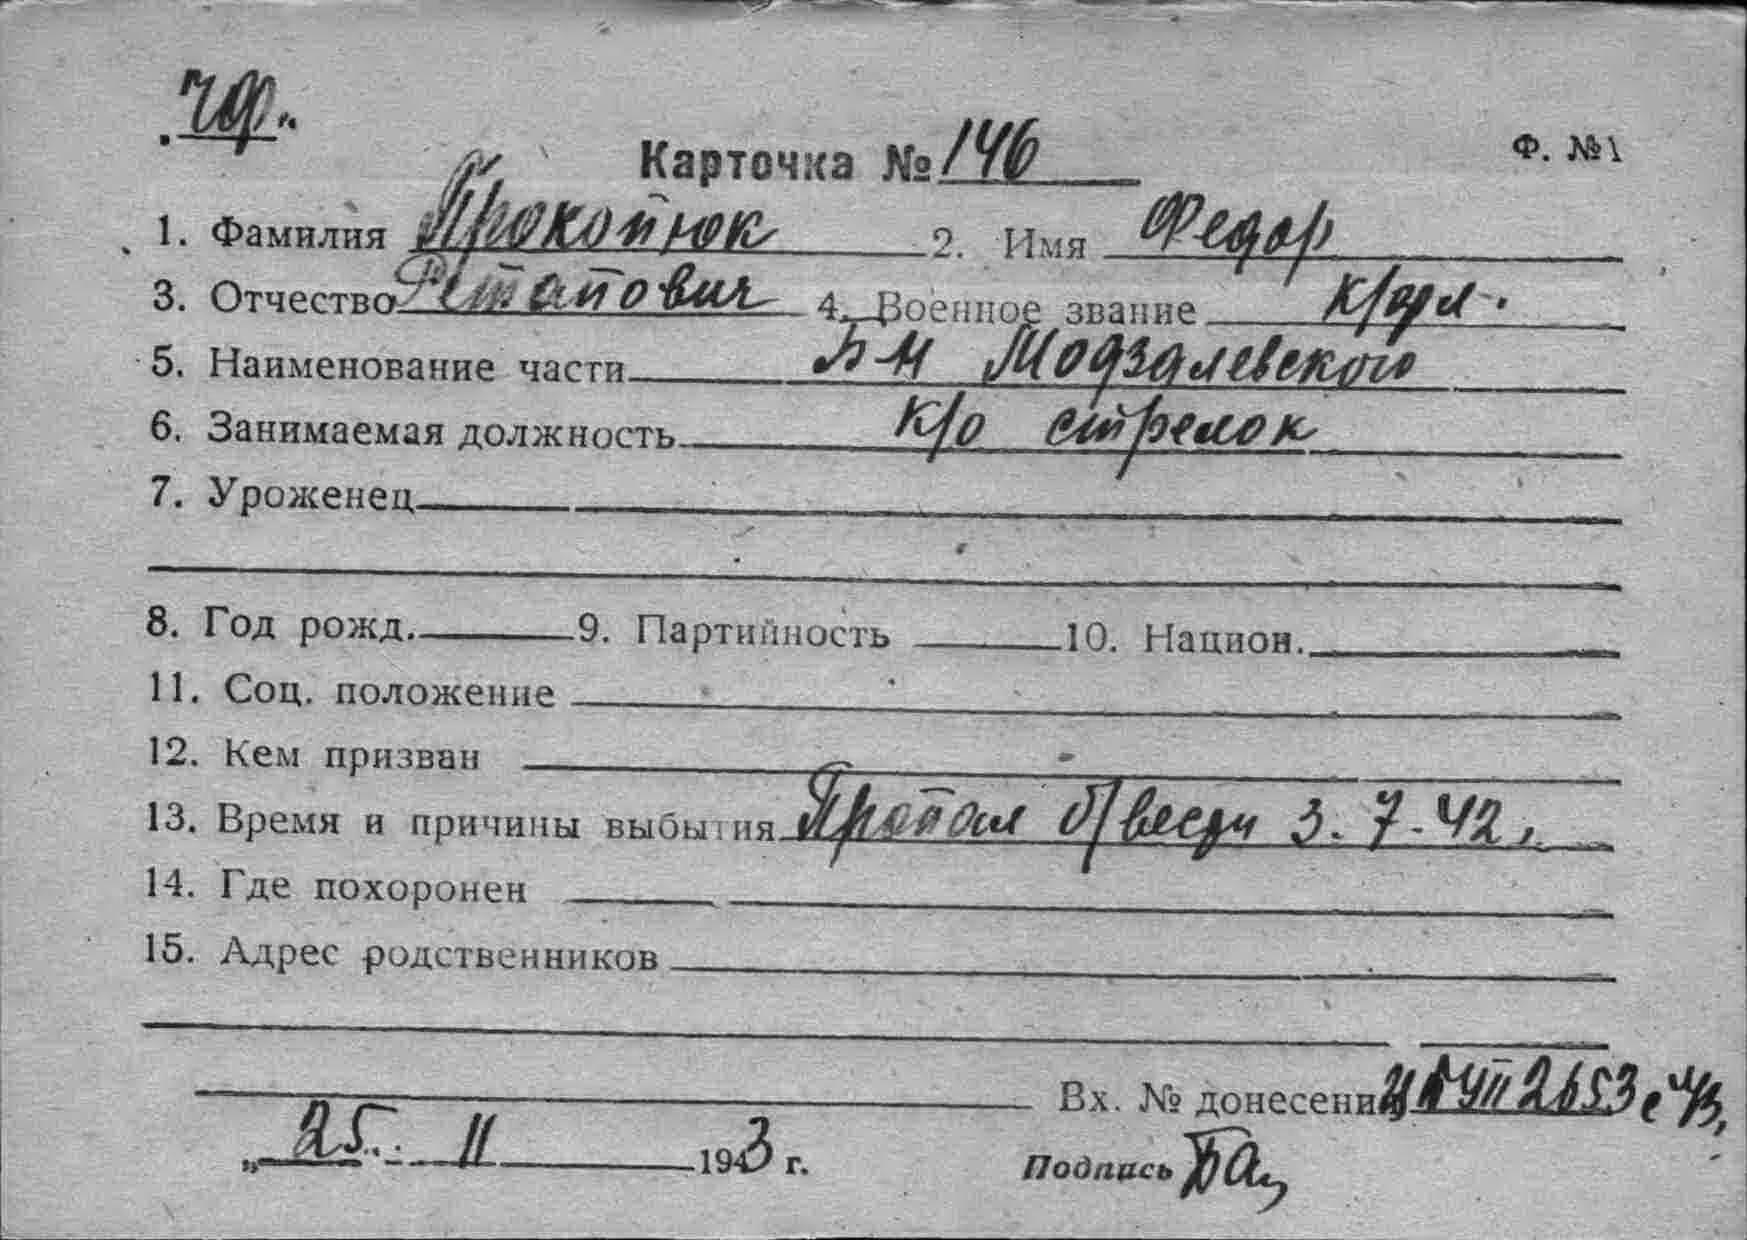 Карточка № 146 Ф. №1
1. Фамилия Прокопюк 2. Имя Федор
3. Отчество 4. Военное звание к/арм.
5. Наименование части Модзалевского
6. Занимаемая должность К/о стрелок
7. Уроженец
8. Год рожд. 9. Партийность 10. Национ.
11. Соц. положение
12. Кем призван
13. Время и причины выбытия Пропал б/вести 3.7.42 г.
14. Где похоронен
15. Адрес родственников
Вх. № донесения 2653 с 43
„ 25. 11 1943 г. Подпись